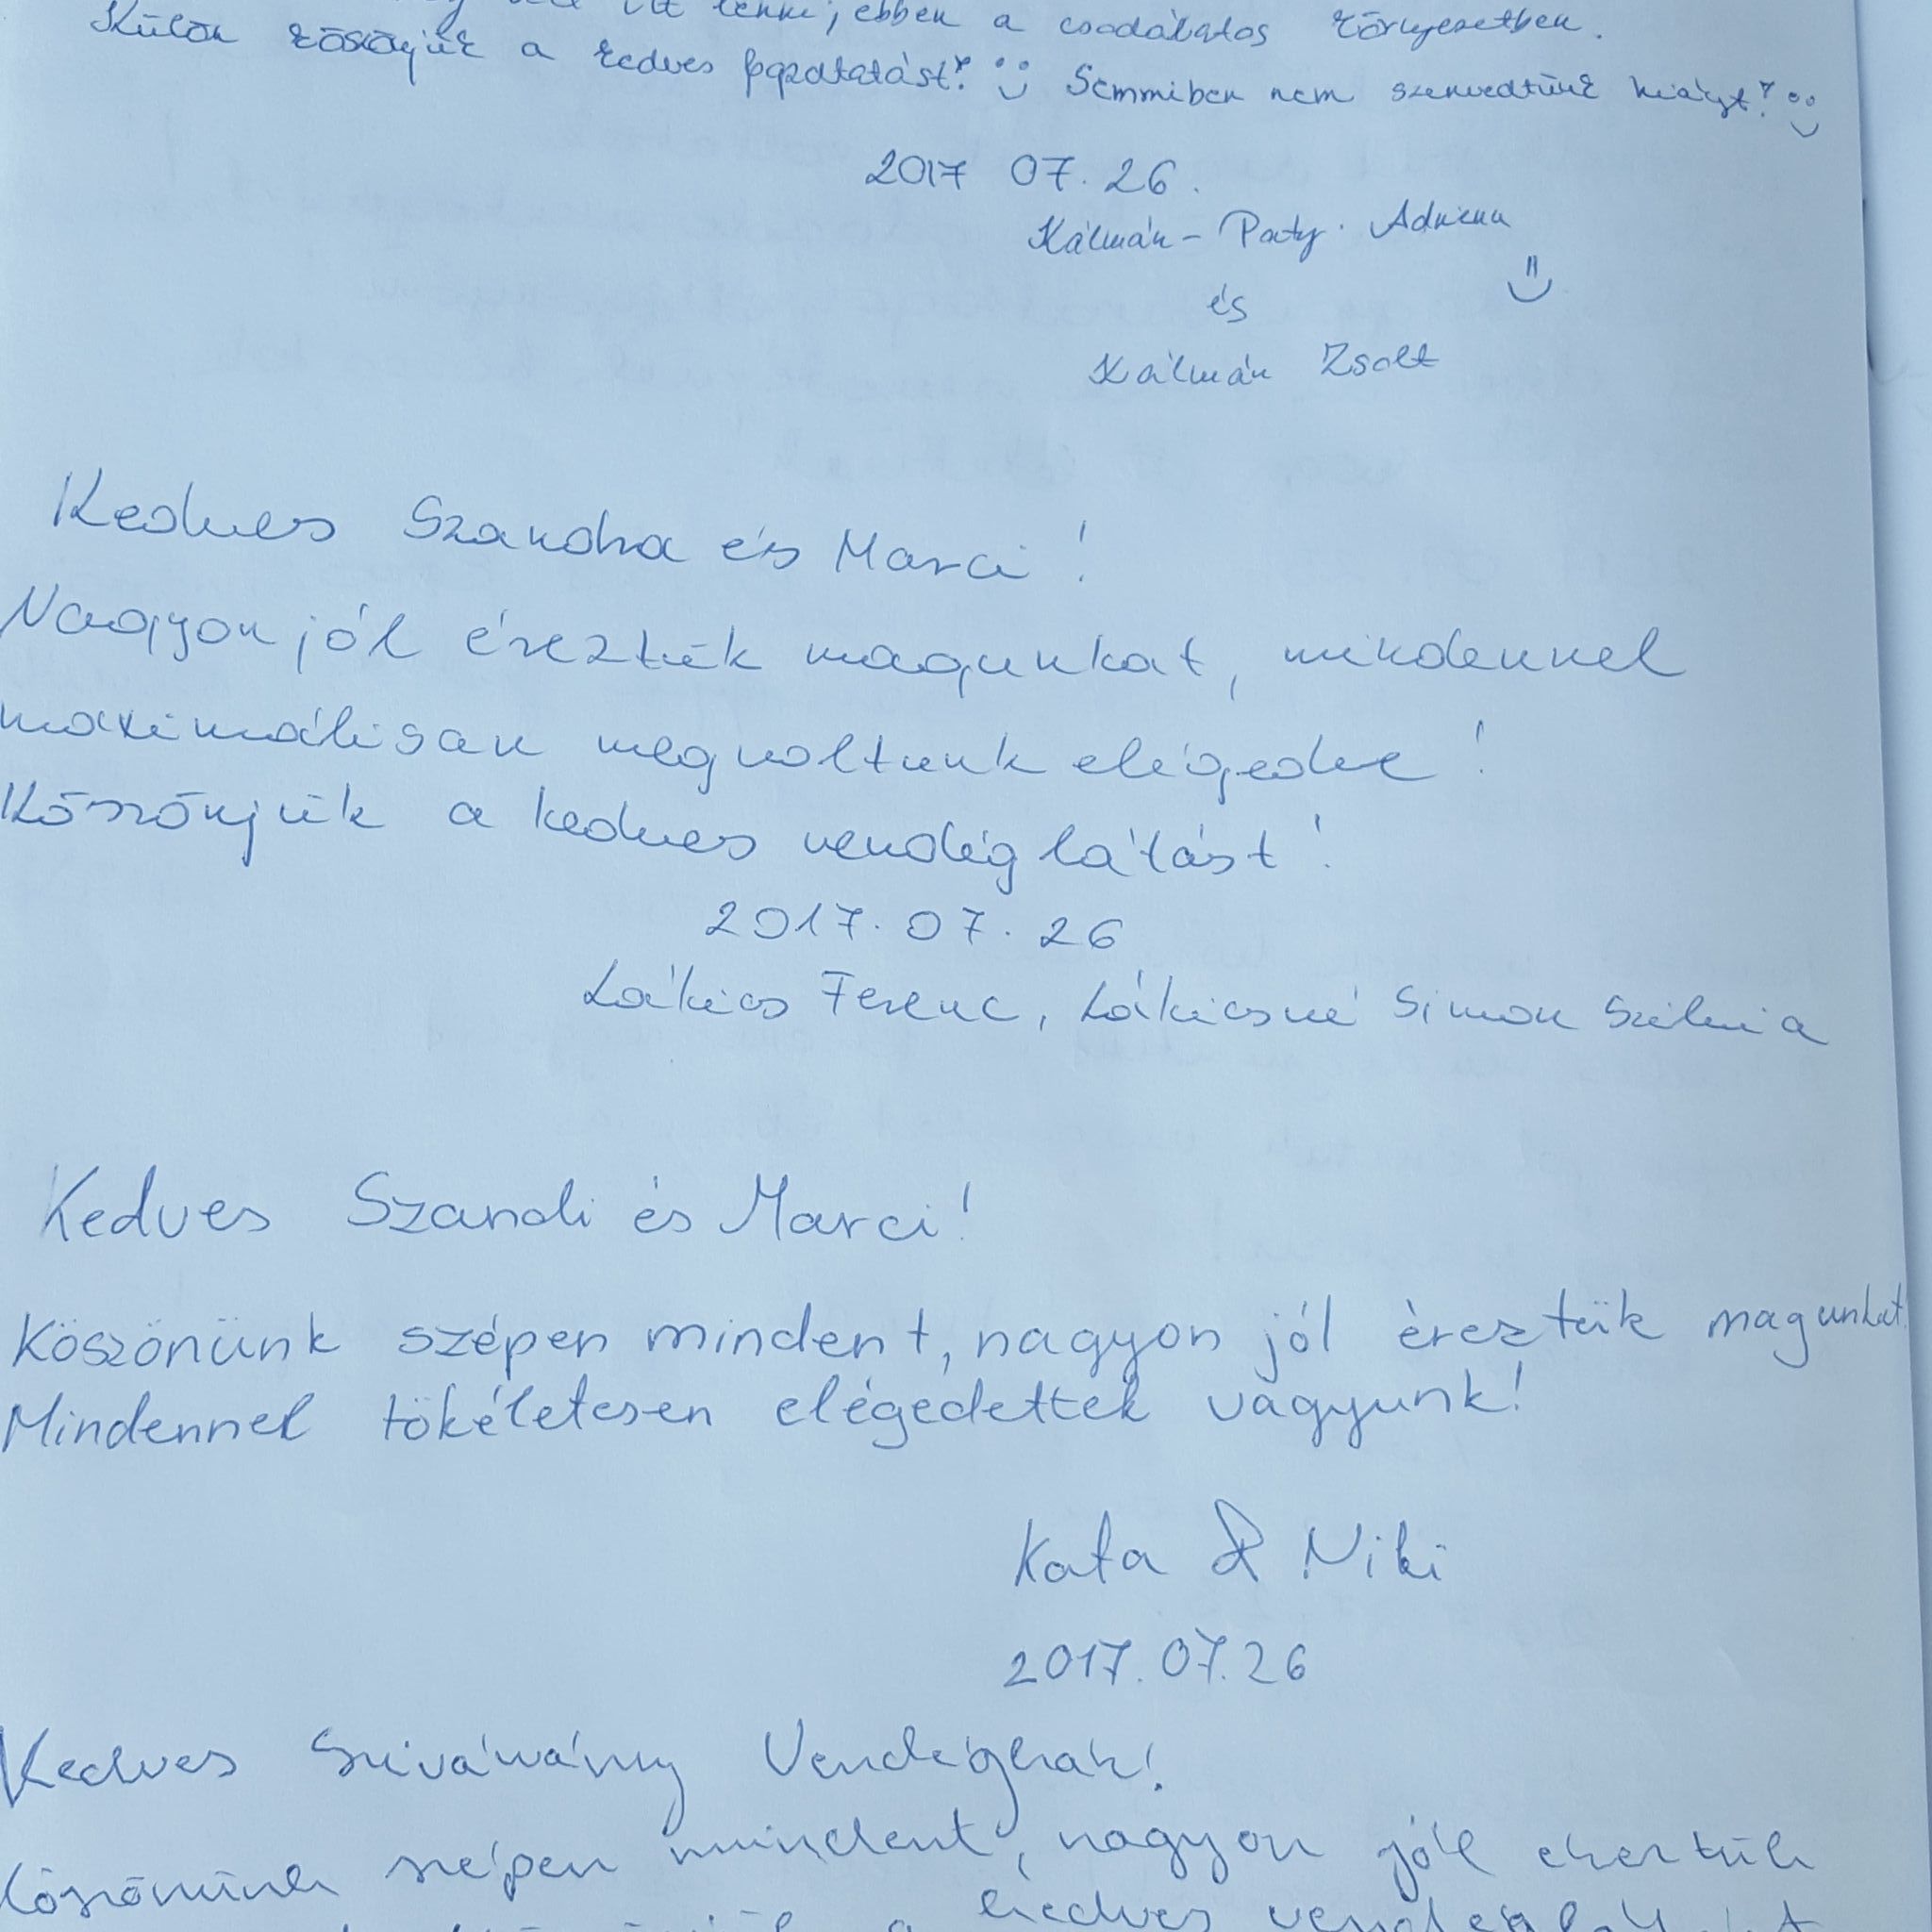 itt lenni, ebben a csodálatos környezetben.
Külön köszönjük a kedves fogadtatást! :) Semmiben nem szenvedtünk hiányt! :)
2017 07. 26.
Kálmán - Paty. Adrienn
és
Kálmán Zsolt
Kedves Szandra és Marci!
Nagyon jól éreztük magunkat, mindennel
maximálisan meg voltunk elégedve!
Köszönjük a kedves vendéglátást!
2017. 07. 26
Lákics Ferenc, Lákicsné Simon Szilvia
Kedves Szandi és Marci!
Köszönünk szépen mindent, nagyon jól éreztük magunkat!
Mindennel tökéletesen elégedettek vagyunk!
Kata & Niki
2017. 07. 26
Kedves Szivárvány Vendégház!
Köszönünk szépen mindent, nagyon jól éreztük
a kedves vendéglátást